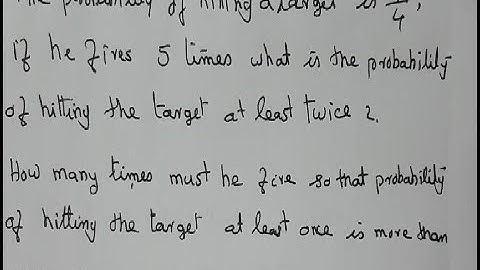 The probability of hitting a target is /4,
If he fires 5 times what is the probability
of hitting the target at least twice 2.
How many times must he fire so that probability
of hitting the target at least once is more than